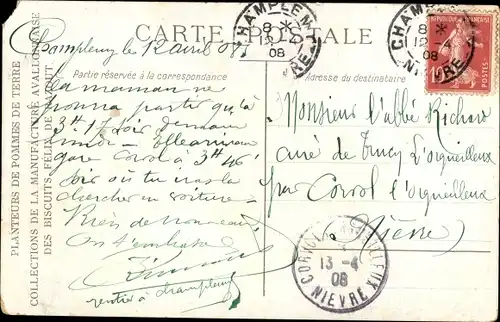 CARTE POSTALE
Champlemy le 12 avril 08
Partie réservée à la correspondance
Adresse du destinataire
La maman ne
pourra partir qu'à
3h 17 soir demain
gare Corvol à 3h 46
soir où tu iras la
chercher en voiture
Rien de nouveau
On t'embrasse
rentré à Champlemy
Monsieur l'abbé Richard
curé de Trucy l'Orgueilleux
par Corvol l'Orgueilleux
Nièvre
PLANTEURS DE POMMES DE TERRE
COLLECTIONS DE LA MANUFACTURE AVALLONNAISE
DES BISCUITS FÉLIX DE
CHAMPLEMY
8
12
08
CHAMPLEMY
8
12
08
NIEVRE
13 -4
08
NIEVRE